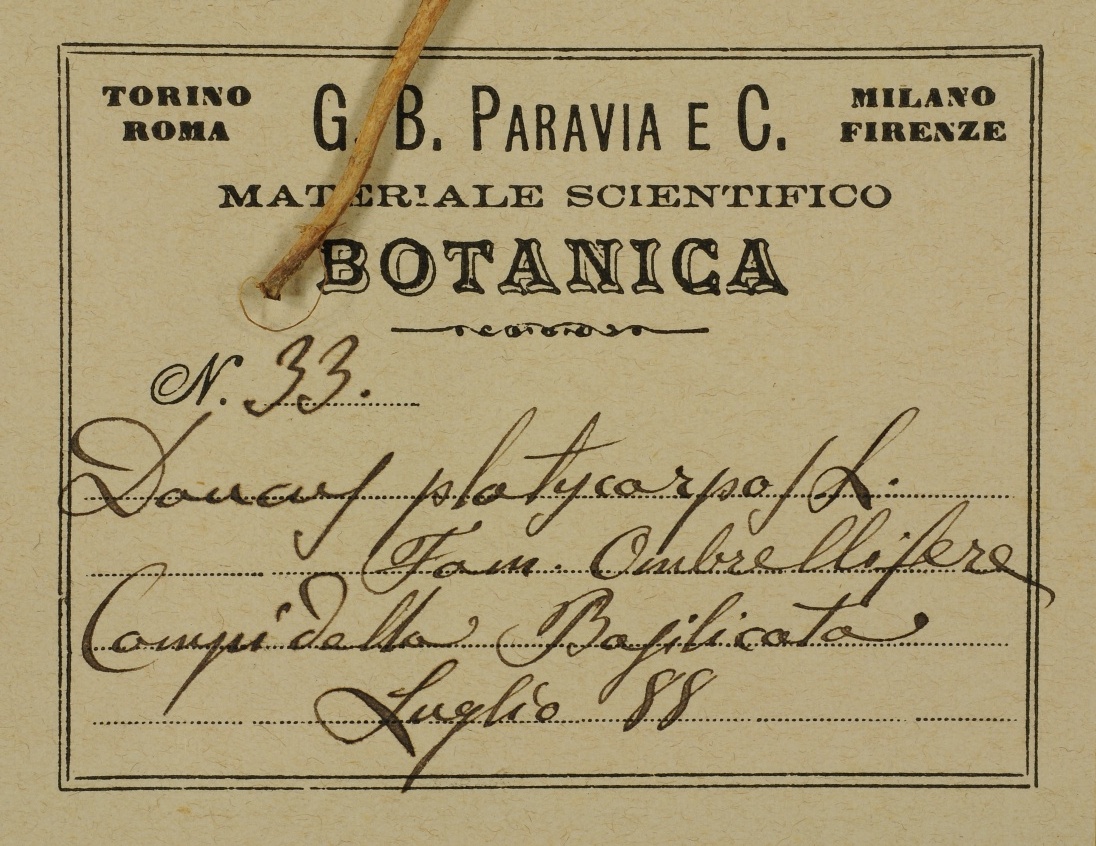 TORINO G. B. PARAVIA E C. MILANO
ROMA FIRENZE
MATERIALE SCIENTIFICO
BOTANICA
N. 33.
Daucus platycarpos L.
Fam. Ombrellifere
Campi della Basilicata
Luglio 88